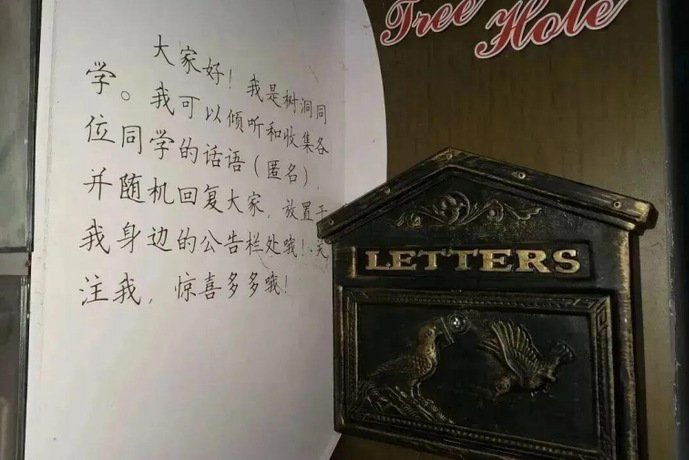 Tree Hole
大家好！我是树洞同
学。我可以倾听和收集各
位同学的话语（匿名），
并随机回复大家，放置于
我身边的公告栏处哦！关
注我，惊喜多多哦！
LETTERS